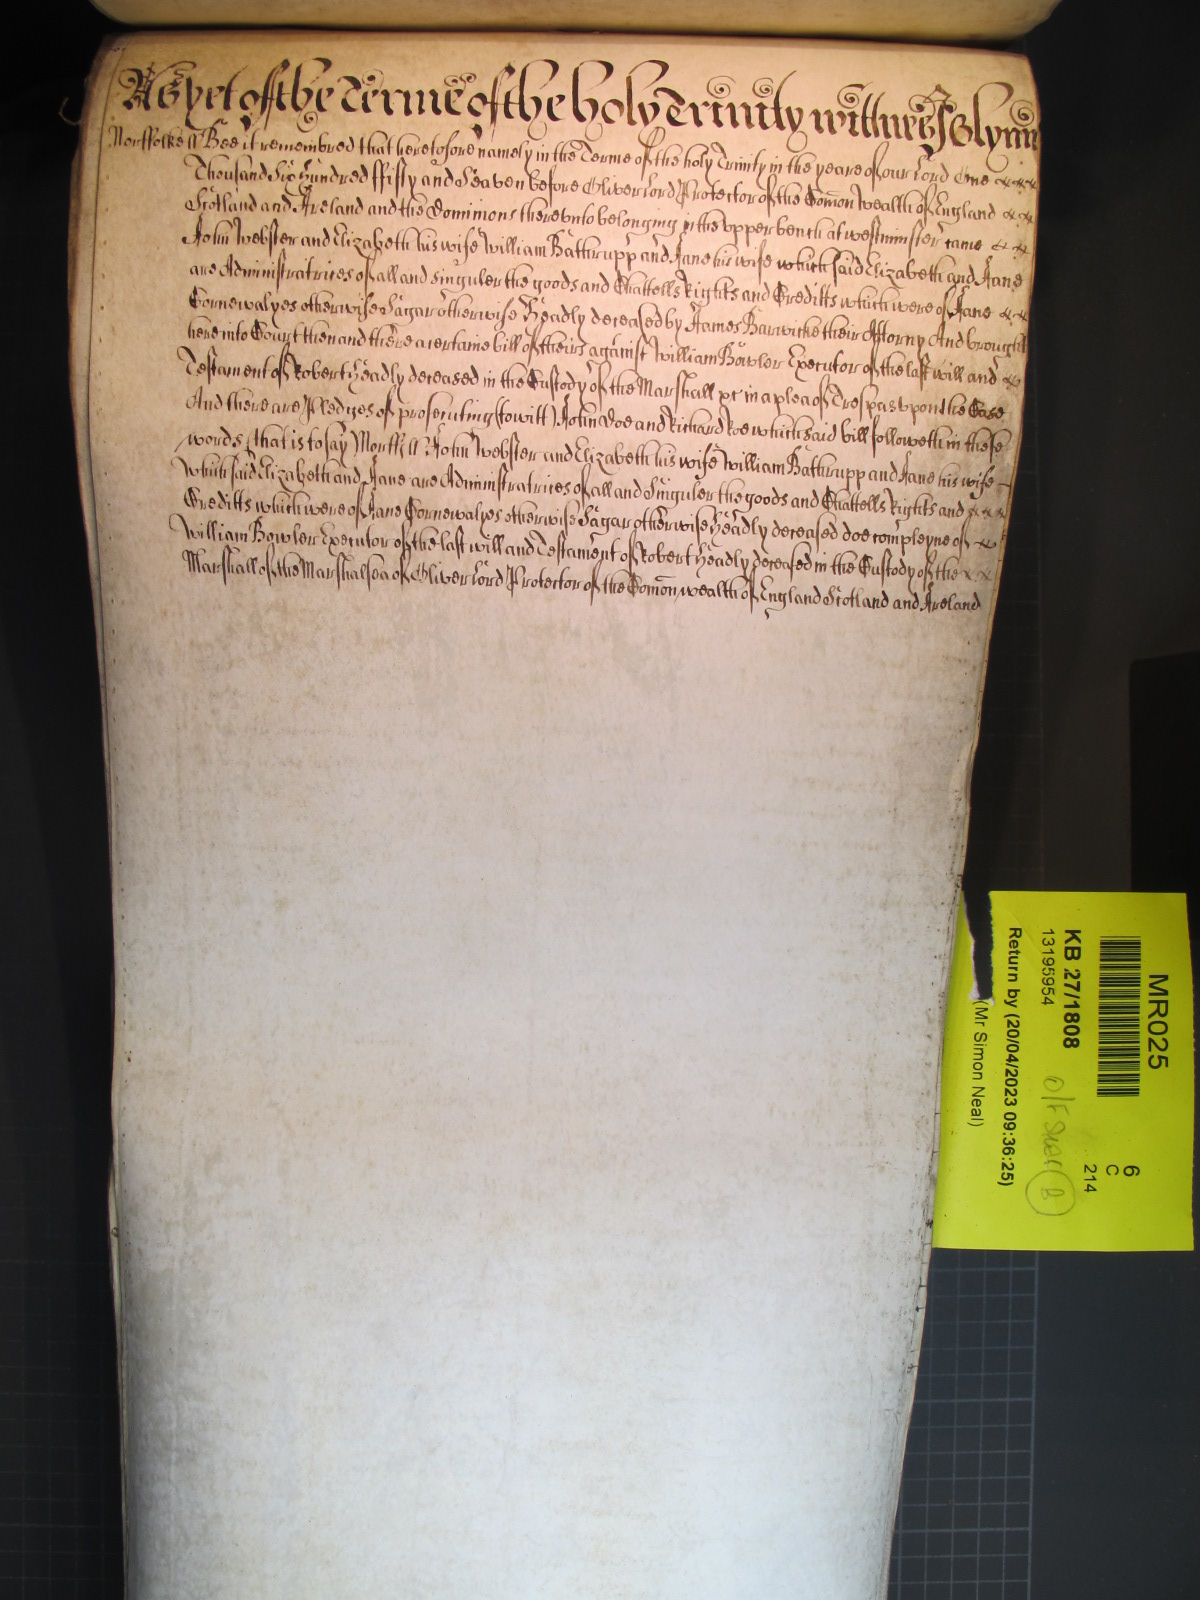 As yet of the Terme of the holy Trinity witnes J Glynn
Norffolke ss Bee it remembred that heretofore namely in the Terme of the holy Trinity in the yeare of our Lord One
Thousand Six Hundred ffifty and Seaven before Oliver Lord Protector of the Com̄on Wealth of England
Scotland and Ireland and the Dominions therevnto belonging in the vpper bench at westminster came
John Webster and Elizabeth his wife William Bathrupp and Jane his wife which said Elizabeth and Jane
are Administratrices of all and singuler the goods and Chattells Rights and Creditts which were of Jane
Cornewalyes otherwise Sagar otherwise Headly deceased by James Barwicke their Attorny And brought
here into Court then and there a certaine bill of theirs against William Bowler Executor of the last will and
Testament of Robert Headly deceased in the Custody of the Marshall &c in a plea of Trespas vpon the Case
And there are Pledges of prosecuting (to witt) John Doe and Richard Roe which said bill followeth in these
words, that is to say Norff ss John Webster and Elizabeth his wife William Bathrupp and Jane his wife
which said Elizabeth and Jane are Administratrices of all and Singuler the goods and Chattells Rights and
Creditts which were of Jane Cornewalyes otherwise Sagar otherwise Headly deceased doe compleyne of
William Bowler Executor of the last will and Testament of Robert Headly deceased in the Custody of the
Marshall of the Marshalsea of Oliver Lord Protector of the Com̄on wealth of England Scotland and Ireland
MR025
6
C
214
KB 27/1808
13195954
Return by (20/04/2023 09:36:25)
(Mr Simon Neal)
B